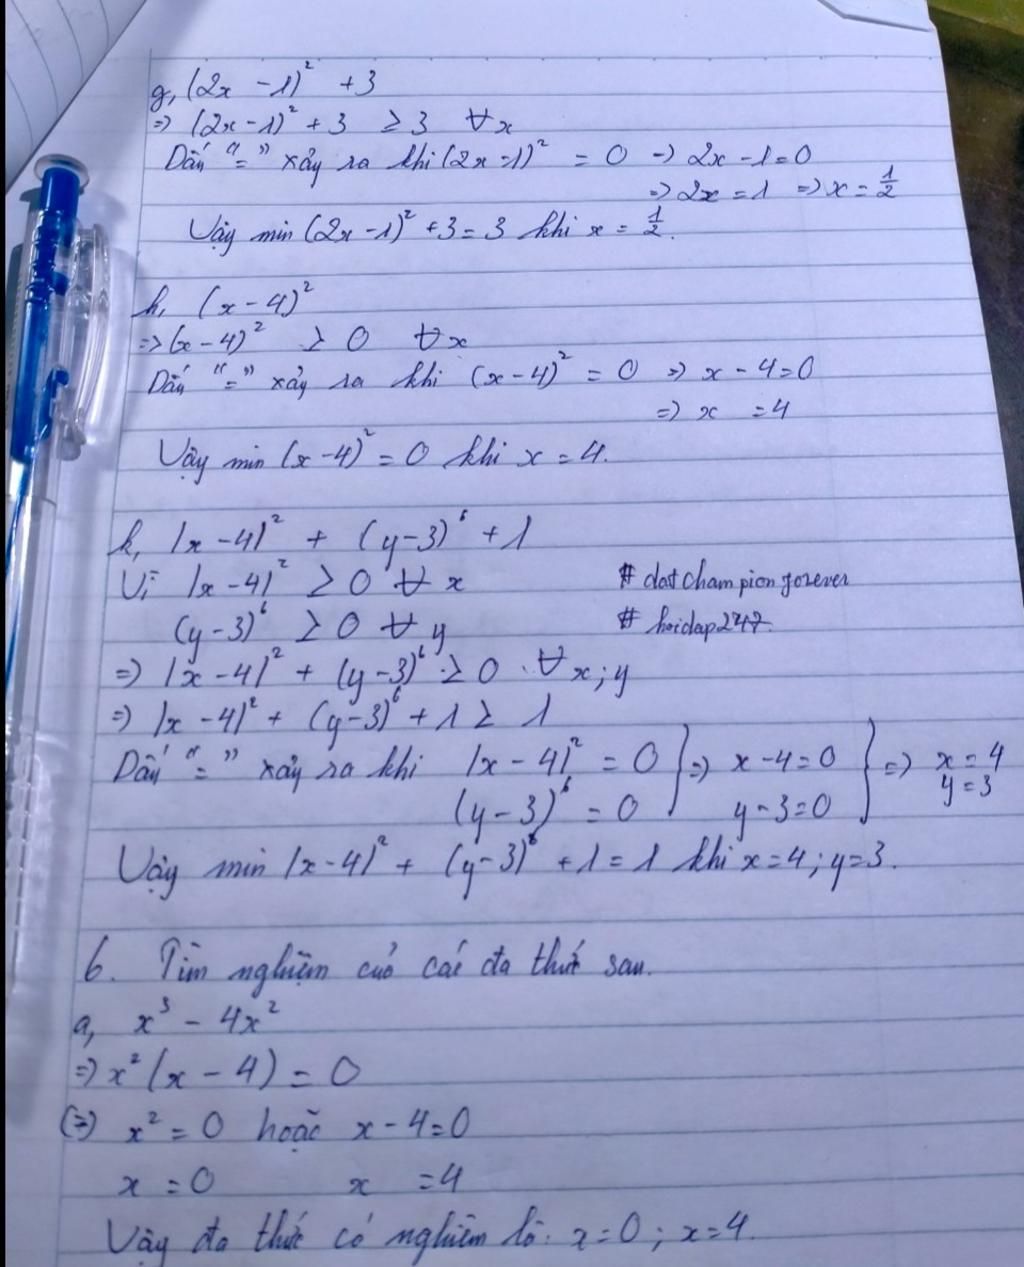 g, (2x - 1)² + 3
=> (2x - 1)² + 3 ≥ 3 ∀ x
Dấu "=" xảy ra khi (2x - 1)² = 0 => 2x - 1 = 0
=> 2x = 1 => x = 1/2
Vậy min (2x - 1)² + 3 = 3 khi x = 1/2.
h, (x - 4)²
=> (x - 4)² ≥ 0 ∀ x
Dấu "=" xảy ra khi (x - 4)² = 0 => x - 4 = 0
=> x = 4
Vậy min (x - 4)² = 0 khi x = 4.
k, |x - 4|² + (y - 3)⁶ + 1
Vì |x - 4|² ≥ 0 ∀ x # datchampionforever
(y - 3)⁶ ≥ 0 ∀ y # hoidap247
=> |x - 4|² + (y - 3)⁶ ≥ 0 ∀ x; y
=> |x - 4|² + (y - 3)⁶ + 1 ≥ 1
Dấu "=" xảy ra khi |x - 4|² = 0 } => x - 4 = 0 } => x = 4
(y - 3)⁶ = 0 y - 3 = 0 y = 3
Vậy min |x - 4|² + (y - 3)⁶ + 1 = 1 khi x = 4; y = 3.
6. Tìm nghiệm của các đa thức sau.
a, x³ - 4x²
=> x² (x - 4) = 0
(=>) x² = 0 hoặc x - 4 = 0
x = 0 x = 4
Vậy đa thức có nghiệm là: x = 0; x = 4.